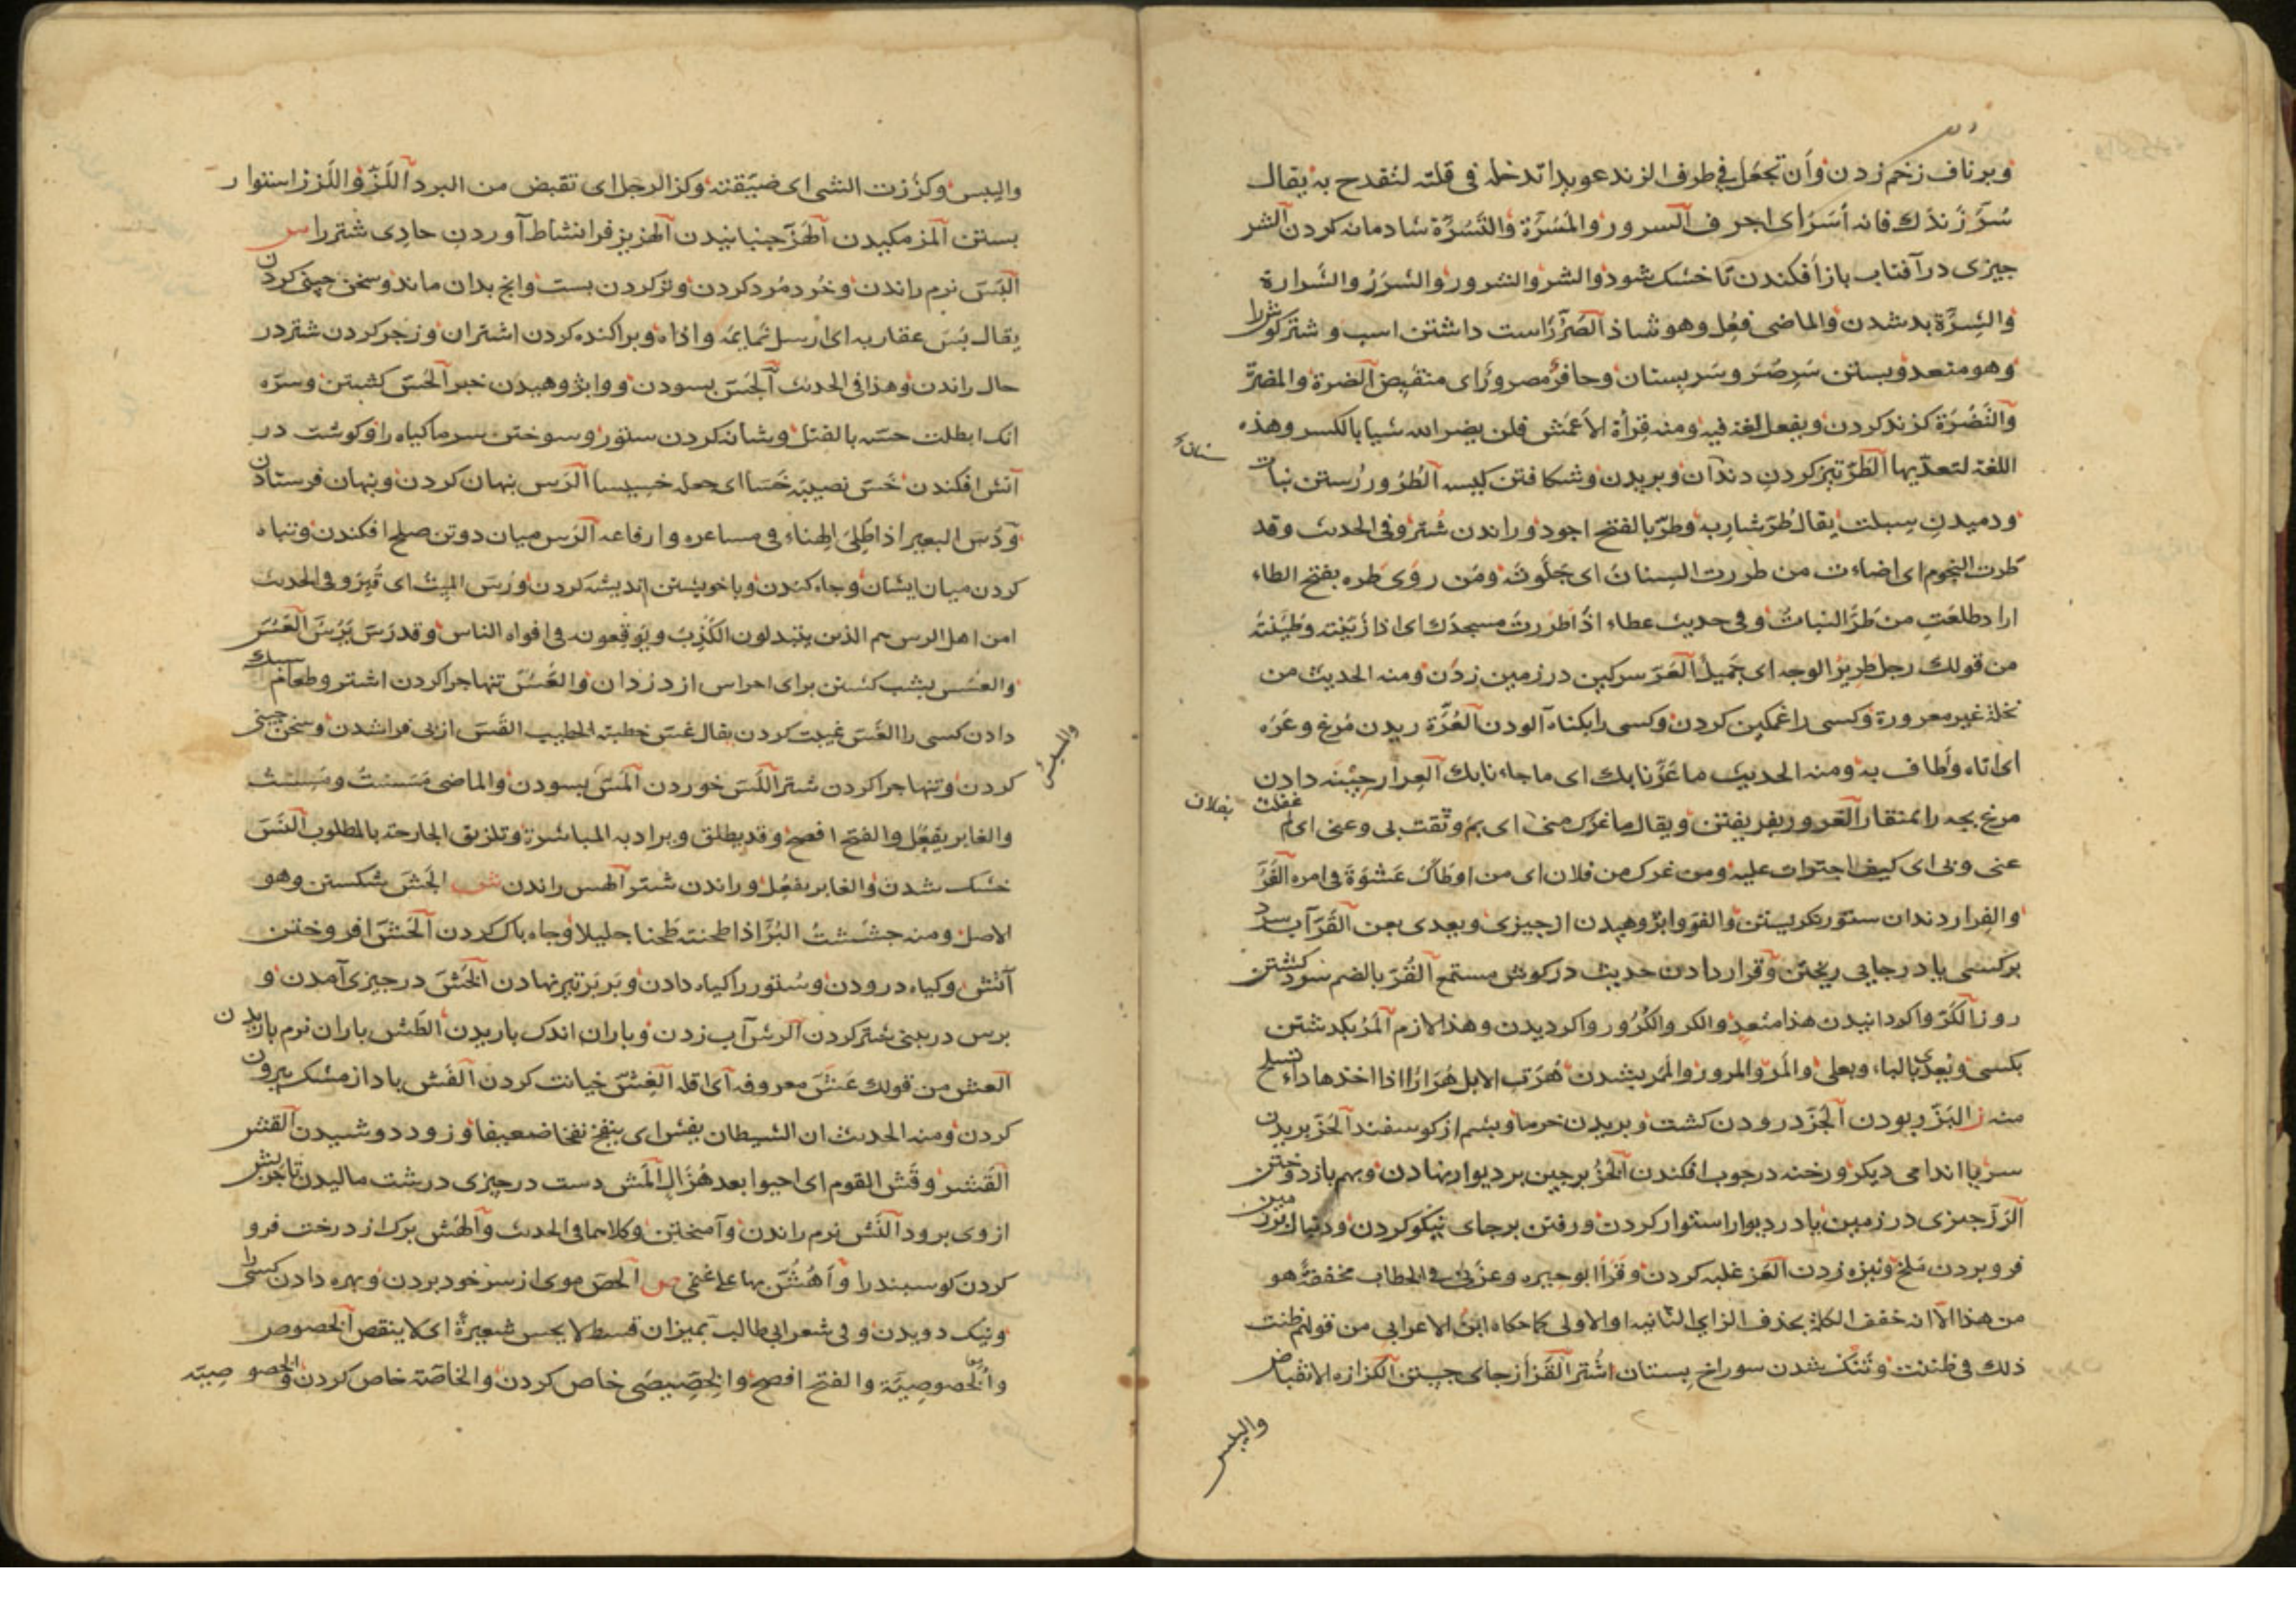 وبرناف زخم زدن وأن تجعل في طرف الزند عويدا تدخله في قلته لتقدح به يقال
سُرّ زندك فانه أسَرّ اى اجوف السرور والمَسَرّة والتَسِرّة شادمانه كردن الشر
جيزى در آفتاب باز افكندن تا خشك شود والشر والشرور والشَرَرُ والشَرارة
والشِرّة بد شدن والماضى فعُل وهو شاذ الصَرّ راست داشتن اسب و شتر كوش را
وهو متعد وبستن سَرِ صُرّ و سَر پستان وحافرٌ مصرورٌ اى منقبض الضرة والمضرّ
والتَضُرّة كزند كردن ويفعل لغة فيه ومنه قراة الاعمش فلن يضر الله شيا بالكسر وهذه
اللغة لتعديها الطَرّ تيز كردن دندان وبريدن وشكافتن كيسه الطُرُور رُستن نبات
ودميدن سِبلت يقال طُرّ شاربه وطرّ بالفتح اجود وراندن شتر وفى الحديث وقد
طرت النجوم اى اضاءت من طررت السنان اى جَلوته ومن روى طره بفتح الطاء
اراد طلعَت من طَرّ النبات وفى حديث عطاء اذا طررتَ مسجدَك اى اذا زيّنته وطيّنته
من قولك رجل طرير الوجه اى جَميلُ العَرّ سركين در زمين زدن ومنه الحديث من
نخلة غير معرورة وكسى را غمكين كردن وكسى را بكناه آلودن العُرّة ريدن مرغ وعَرّه
اى اتاه واَطاف به ومنه الحديث ما عَرّنا بك اى ما جاءنا بك العِرار جينه دادن
مرغ بچه را بمنقار الغرور بفريفتن ويقال ما غرك منى اى بم وثقت بى وعنى اى لم غفلت
عنى وبى اى كيف اجترات عليه ومن غرك من فلان اى من اوطاك عَشوَة فى امره الفَرّ
والفِرار دندان ستور نكريستن والفرّ وابژوهيدن از جيزى ويعدى بعن القَرّ آب سرد
بركسى يا در جايى ريختن وقرار دادن حديث در كوش مستمع القُرّ بالضم سرد كشتن
روز الكَرّ واكردانيدن هذا متعد والكر والكُرُور واكرديدن وهذا لازم المَرّ بكدشتن
بكسى ويُعدّى بالباء وبعلى والمَرّ والمرور والمَمَر بشدن هُرّت الابل هُرَارًا اذا اخذها داء تسلح
منه ز البَزّ ربودن الجَزّ درودن كشت وبريدن خرما وپشم از كوسفند الحَزّ بريدن
سر يا اندامى ديكر ورخنه در چوب افكندن الخَزّ برجين بر ديوار نهادن وبهم باز دوختن
الرَزّ جيزى در زمين يا در ديوار استوار كردن ورفتن بر جاى نيكو كردن ودنبال بزمين
فرو بردن ملخ ونيزه زدن العَز غلبه كردن وقرا ابو حيوه وعزنى فى الخطاب مخففة هو
من هذا الا انه خفف الكلمة بحذف الزاى الثانيه او الاولى كما حكاه ابن الاعرابى من قولهم ظنت
ذلك فى ظننت وتنك شدن سوراخ پستان اشتر القَزّ از جاى جستن الكزازه الانقباض
واليبس
سنانه
بفلان
واليبس وكزَزت الشى اى ضيّقته وكز الرجل اى تقبض من البرد اللَزّ واللَزز استوار
بستن المز مكيدن الهَزّ جنبانيدن الهزيز فرانشاط آوردن حادى شتر را س
البَسّ نرم راندن وخُرد مُرد كردن وتر كردن بست وانج بدان ماند وسخن جينى كردن
يقال بَسّ عقاربه اى ارسل نمايمه واذاه وبراكنده كردن اشتران وزجر كردن شتر در
حال راندن وهذا فى الحديث الجَسّ بسودن ووابژوهيدن خبر الحَسّ كشتن وسره
انك ابطلت حسّه بالقتل وشانه كردن ستور وسوختن سرما كياه را وكوشت در
آتش افكندن خَسّ نصيبه خَسّا اى جعله خسيسا الدَس نهان كردن وپنهان فرستادن
ودُسّ البعير اذا طُلِىَ الهناء فى مساعره وارفاغه الرَس ميان دو تن صلح افكندن وتباه
كردن ميان ايشان وجاه كندن وبا خويشتن انديشه كردن ورُس الميتُ اى قُبِرَ وفى الحديث
امن اهل الرس هم الذين يبتدلون الكَذِبَ ويوقِعونه فى افواه الناس وقد رَسّ يَرُسّ العَسّ
والعسس بشب كشتن براى احراس از دزدان والعَسّ تنها جرا كردن اشتر وطعام سبك
دادن كسى را الغَسّ غيبت كردن يقال غسّ خطبة الخطيب القَسّ از پى فرا شدن وسخن جينى
كردن وتنها جرا كردن شتر اللَسّ خوردن المَسّ بسودن والماضى مَسَستُ ومَسِست
والغابر يفعُل والفتح افصح وقد يطلق ويراد به المباشرة وتلزيق الجارحة بالمطلوب النَسّ
خشك شدن والغابر يفعُل وراندن شتر الهس راندن ش الجَشّ شكستن وهو
الاصل ومنه جشَشتُ البُرّ اذا طحنته طحنا جليلا وجاه پاك كردن الحَشّ افروختن
آتش وكياه درودن وستور را كياه دادن وپر بر تير نهادن الخَشّ در جيزى آمدن و
برس در بينى شتر كردن الرش آب زدن وباران اندك باريدن الطَش باران نرم باريدن
العش من قولك عَشّ معروفه اى اقله الغِشّ خيانت كردن الفَش باد از مشك بيرون
كردن ومنه الحديث ان الشيطان يفش اى ينفخ نفخا ضعيفا وزود دوشيدن القش
القشر وقَش القوم اى احيوا بعد هُزال المَش دست در جيزى درشت ماليدن تا جربش
از وى برود النَش نرم راندن وآمختن وكلاهما فى الحديث والهَش برك از درخت فرو
كردن كوسبند را وأهُشّ بها على غنمى ص الحَص موى از سر خود بردن وبهره دادن كسى را
ونيك دويدن وفى شعر ابى طالب بميزان قسط لا يحس شعيرةً اى لا ينقص الخصوص
والخُصوصيّة والفتح افصح والخِصّيصَى خاص كردن والخاصّة خاص كردن والخصوصيّه